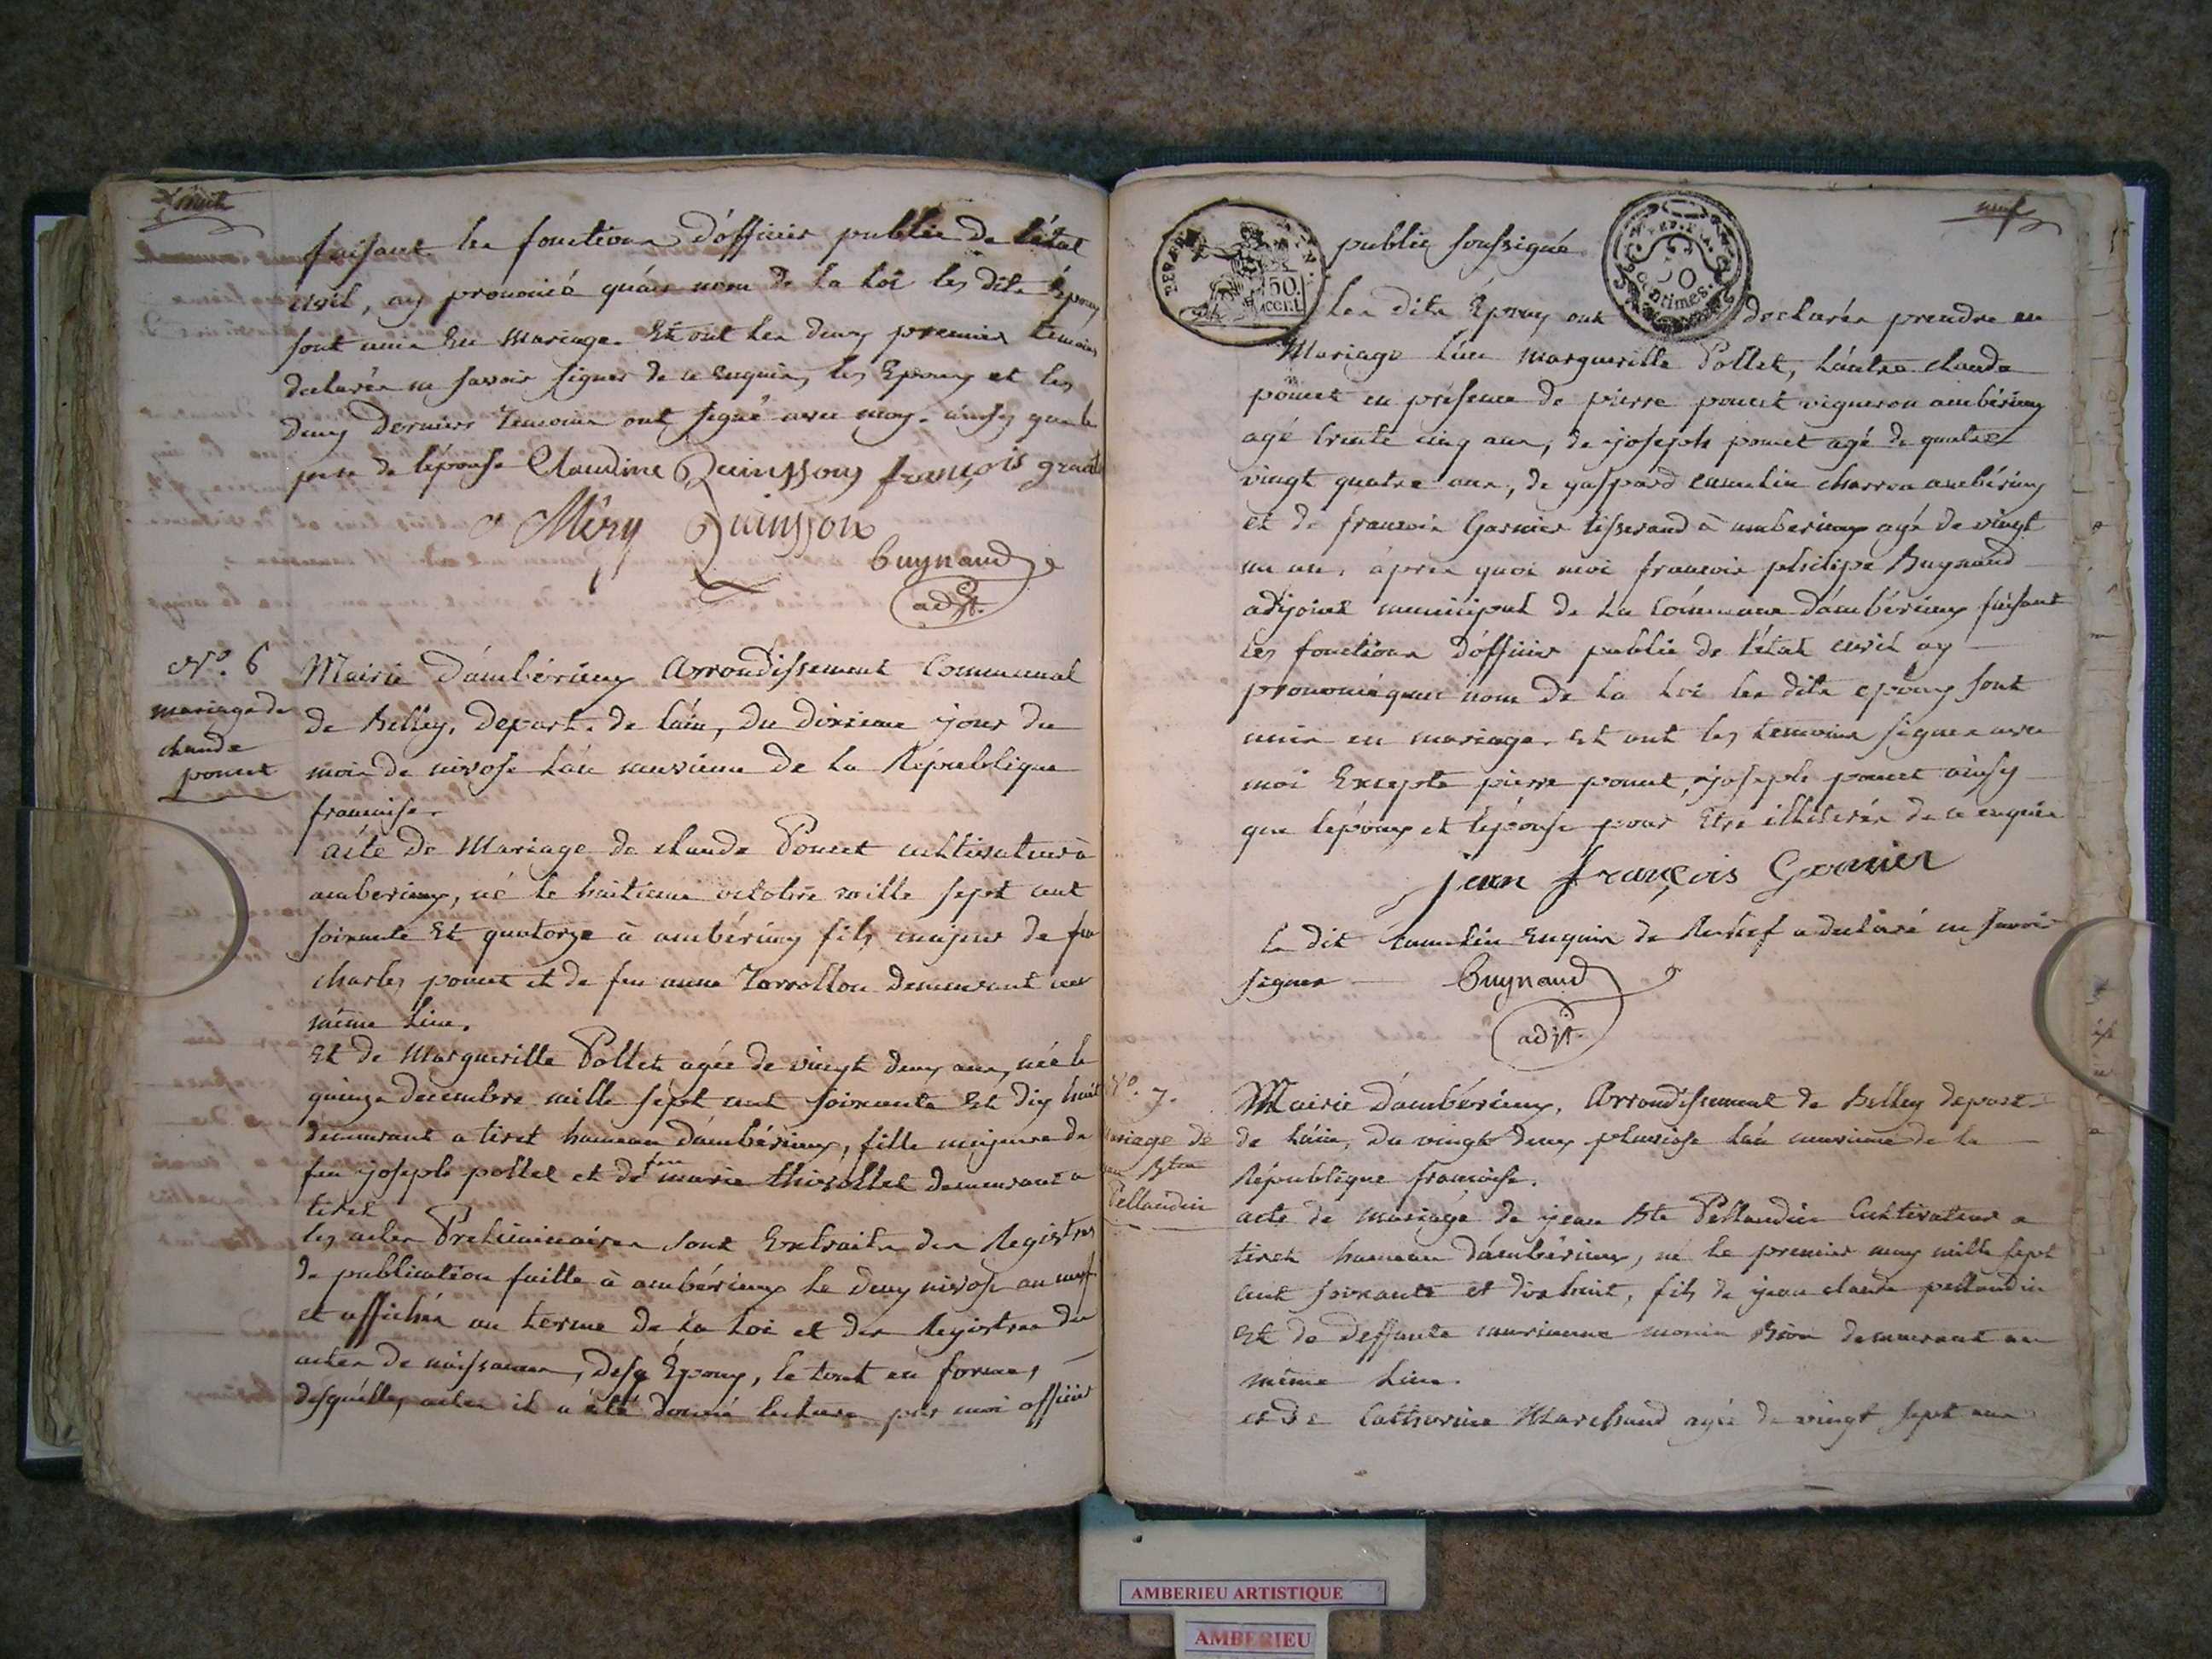 huit
faisant les fonctions d'officier public de l'état
civil, ay prononcé qu'au nom de la loi les dits Époux
sont unis en mariage. Et ont les deux premiers témoins
declarés ne savoir signer de ce enquis, les Epoux et les
deux derniers temoins ont signé avec moy. ainsy que le
pere de l'épouse Claudine Quinsson françois
Méry Quinsson
Buynand
adjt.
N°. 6
mariage de
claude
poncet
Mairie d'ambérieux Arrondissement Communal
de Belley, Depart. de l'ain, du dixieme jour du
mois de nivose l'an neuvieme de la République
francaise.
acte de Mariage de claude Poncet cultivateur à
amberieux, né le huitieme octobre mille sept cent
soixante et quatorze à ambérieux fils majeur de feu
charles poncet et de feu anne demeurant au
même lieu.
et de Marguerille Pollet agée de vingt deux ans, née le
quinze decembre mille sept cent soixante et dix huit
demeurant a tiret hameau d'ambérieux, fille majeure de
feu joseph pollet et de feue marie thivollet demeurant a
tiret
les actes Preliminaires sont Extraits des Registres
de publication faitte à ambérieux le deux nivose an neuf
et affichés au terme de la loi et des Registres des
actes de naissances, desq Époux, le tout en forme,
desquelles actes il a été donné lecture par moi officier
neuf
REP. FRA.
50
cent
50
centimes.
public soussigné.
les dits Époux ont declarés prendre en
Mariage l'un Marguerille Pollet, l'autre claude
poncet en présence de pierre poncet vigneron ambérieux
agé trente cinq ans, de joseph poncet agé de quatre
vingt quatre ans, de gaspard charron ambérieux
et de francois Garnier tisserand à amberieux agé de vingt
un an, après quoi moi francois philipe Buynand
adjoint municipal de la commune d'ambérieux faisant
les fonctions d'officier public de l'état civil ay
prononcé qu'au nom de la loi les dits epoux sont
unis en mariage. et ont les temoins signer avec
moi Excepté pierre poncet, joseph poncet ainsy
que l'époux et l'épouse pour être illiterés de ce enquis
jean françois Garnier
le dit enquis de Rechef a declaré ne savoir
signer Buynand
adjt.
N°. 7.
mariage de
jean Bte
Pellaudin
Mairie d'ambérieux, Arrondissement de Belley depart
de l'ain, du vingt deux pluviose l'an neuvieme de la
République francaise.
acte de mariage de jean Bte Pellaudin Cultivateur a
tiret hameau d'ambérieux, né le premier may mille sept
cent soixante et dix huit, fils de jean claude pellaudin
et de deffunte marianne demeurant au
même lieu.
et de Catherine Marchand agée de vingt sept ans
AMBERIEU ARTISTIQUE
AMBERIEU